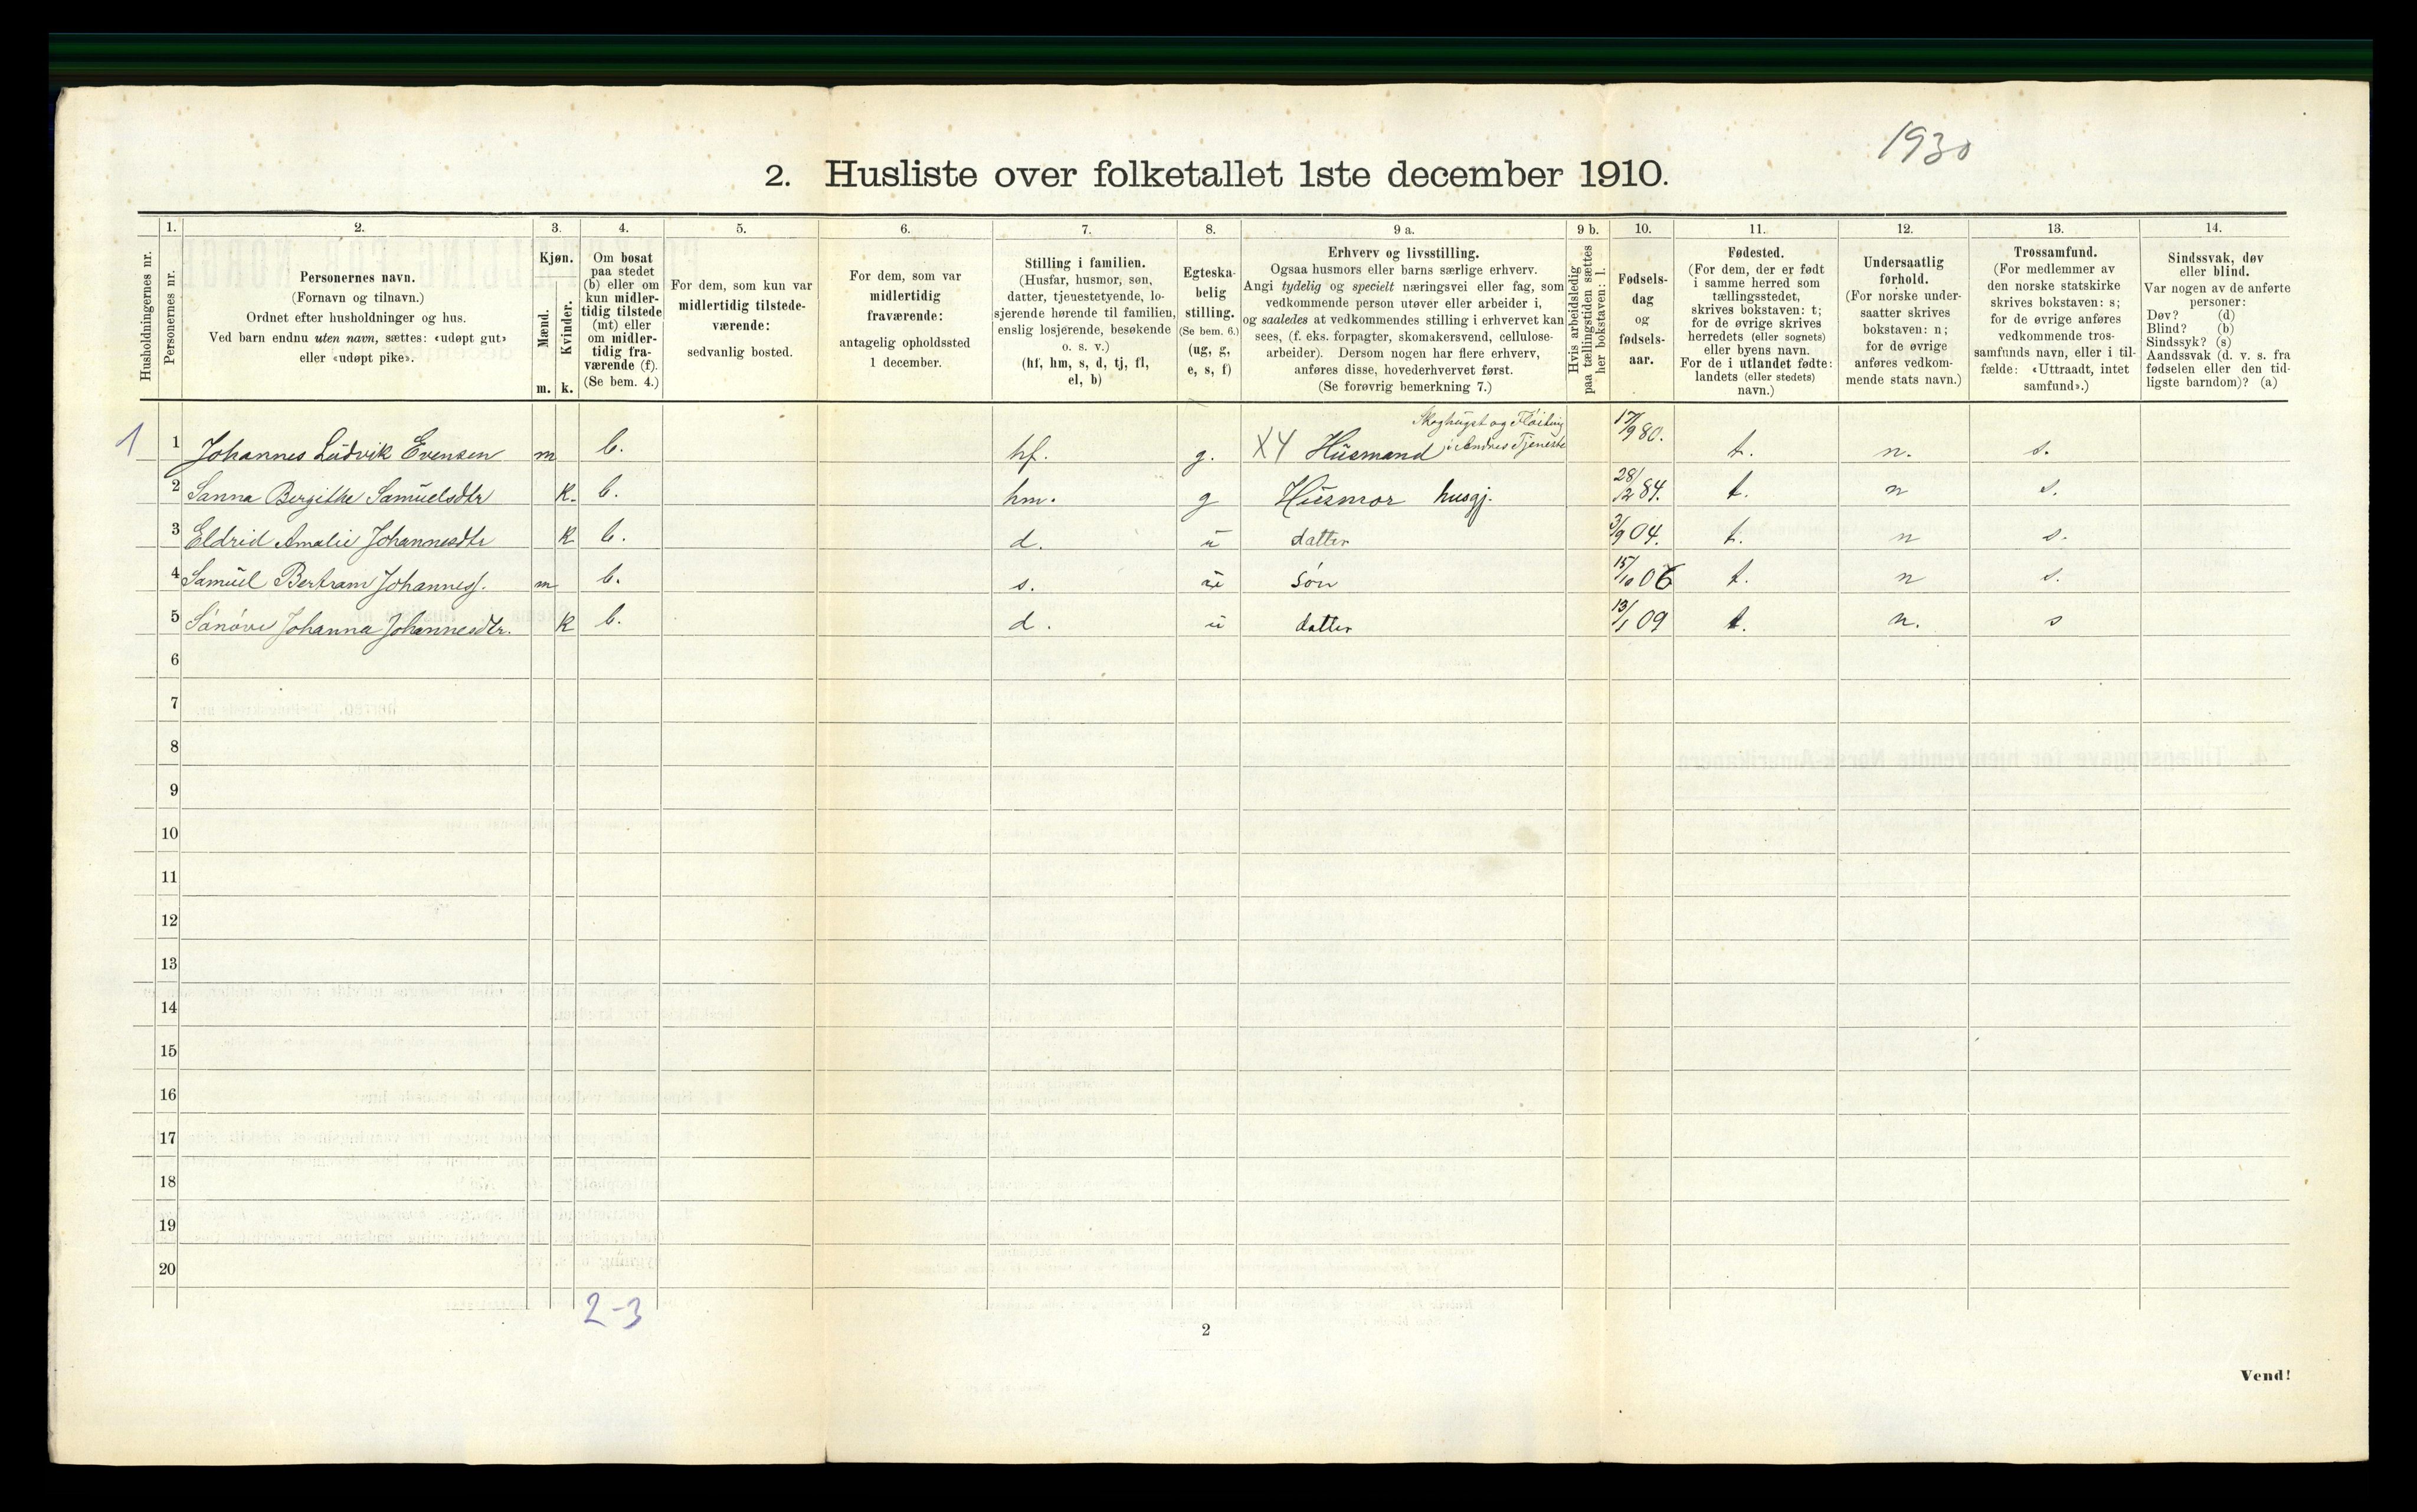 1930
2. Husliste over folketallet 1ste december 1910.
1. 2. 3. 4. 5. 6. 7. 8. 9 a. 9 b. 10. 11. 12. 13. 14.
Husholdningernes nr.
Personernes nr.
Personernes navn.
(Fornavn og tilnavn.)
Ordnet efter husholdninger og hus.
Ved barn endnu uten navn, sættes: «udøpt gut»
eller «udøpt pike».
Kjøn.
Mænd.
Kvinder.
m. k.
Om bosat
paa stedet
(b) eller om
kun midler-
tidig tilstede
(mt) eller
om midler-
tidig fra-
værende (f).
(Se bem. 4.)
For dem, som kun var
midlertidig tilstede-
værende:
sedvanlig bosted.
For dem, som var
midlertidig
fraværende:
antagelig opholdssted
1 december.
Stilling i familien.
(Husfar, husmor, søn,
datter, tjenestetyende, lo-
sjerende hørende til familien,
enslig losjerende, besøkende
o. s. v.)
(hf, hm, s, d, tj, fl,
el, b)
Egteska-
belig
stilling.
(Se bem. 6.)
(ug, g,
e, s, f)
Erhverv og livsstilling.
Ogsaa husmors eller barns særlige erhverv.
Angi tydelig og specielt næringsvei eller fag, som
vedkommende person utøver eller arbeider i,
og saaledes at vedkommendes stilling i erhvervet kan
sees, (f. eks. forpagter, skomakersvend, cellulose-
arbeider). Dersom nogen har flere erhverv,
anføres disse, hovederhvervet først.
(Se forøvrig bemerkning 7.)
Hvis arbeidsledig
paa tællingstiden sættes
her bokstaven: l.
Fødsels-
dag
og
fødsels-
aar.
Fødested.
(For dem, der er født
i samme herred som
tællingsstedet,
skrives bokstaven: t;
for de øvrige skrives
herredets (eller sognets)
eller byens navn.
For de i utlandet fødte:
landets (eller stedets)
navn.)
Undersaatlig
forhold.
(For norske under-
saatter skrives
bokstaven: n;
for de øvrige
anføres vedkom-
mende stats navn.)
Trossamfund.
(For medlemmer av
den norske statskirke
skrives bokstaven: s;
for de øvrige anføres
vedkommende tros-
samfunds navn, eller i til-
fælde: «Uttraadt, intet
samfund».)
Sindssvak, døv
eller blind.
Var nogen av de anførte
personer:
Døv? (d)
Blind? (b)
Sindssyk? (s)
Aandssvak (d. v. s. fra
fødselen eller den tid-
ligste barndom)? (a)
Skoghugst og Fløiting
1 1 Johannes Ludvik Evensen m b. hf. g. X4 Husmand i Andres Tjeneste 17/9 80. t. n. s.
2 Sanna Bergithe Samuelsdtr k. b. hm. g Husmor husgj. 28/12 84. t. n s.
3 Eldrid Amalie Johannesdtr k b. d. u datter 3/9 04. t. n s.
4 Samuel Bertram Johannes. m b. s. u Søn 15/10 06 t. n s.
5 Sanøve Johanna Johannesdtr. k b. d. u datter 13/1 09 t. n. s
6
7
8
9
10
11
12
13
14
15
16
17
18
19
20
2-3
2
Vend!